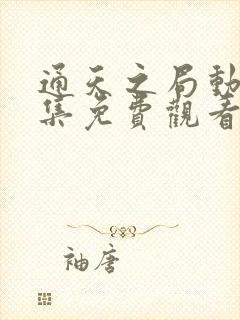 通天之局動
集免費觀看
袖唐